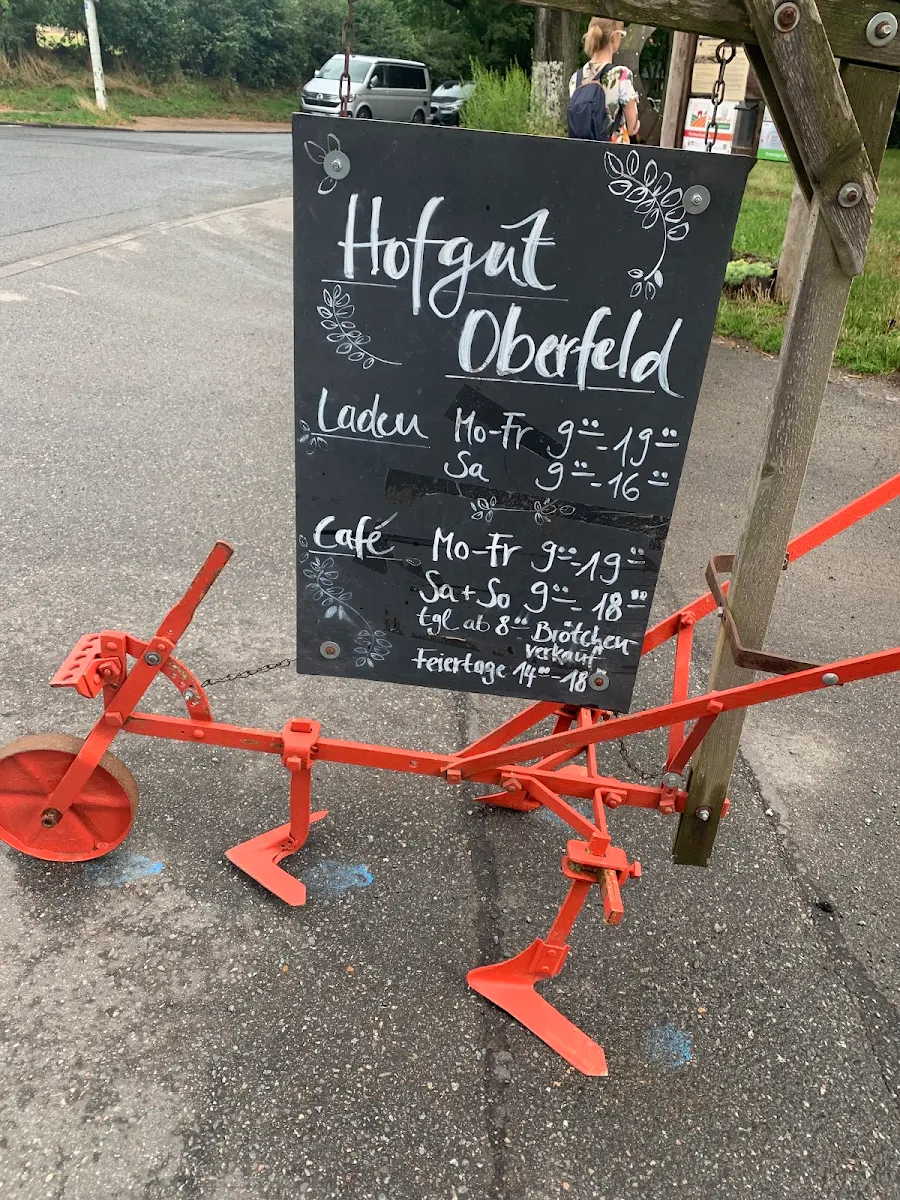 Hofgut
Oberfeld
Laden Mo-Fr 9⁰⁰-19⁰⁰
Sa 9⁰⁰-16⁰⁰
Café Mo-Fr 9⁰⁰-19⁰⁰
Sa+So 9⁰⁰-18⁰⁰
tgl ab 8⁰⁰ Brötchen
verkauf
Feiertage 14⁰⁰-18⁰⁰